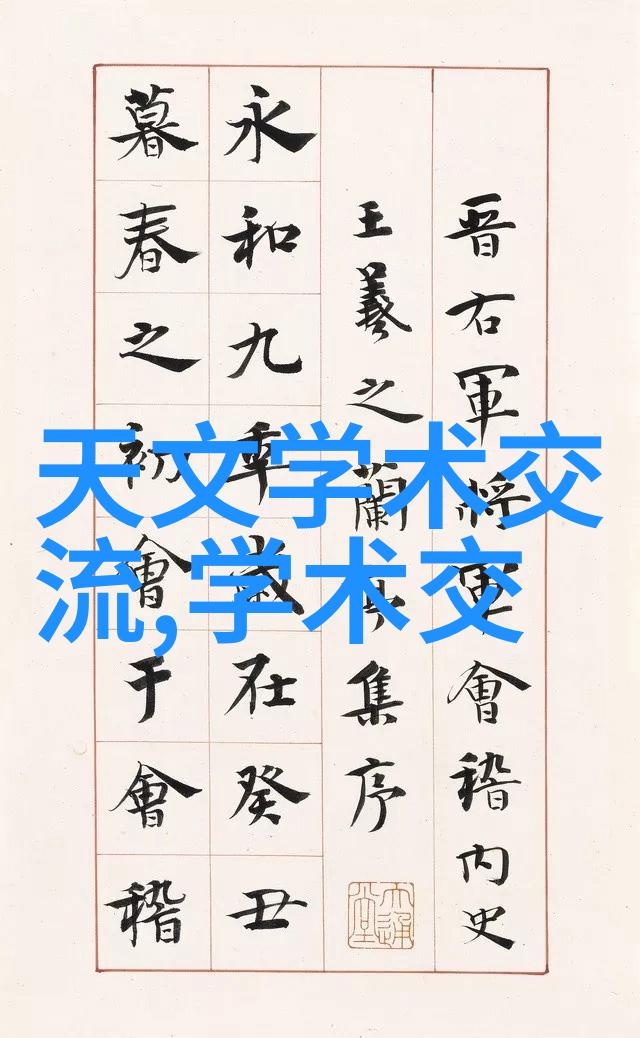 晋右軍将軍會稽内史
王羲之蘭亭集序
永和九年歲在癸丑
暮春之初會于會稽
天文学术交
流,学术交